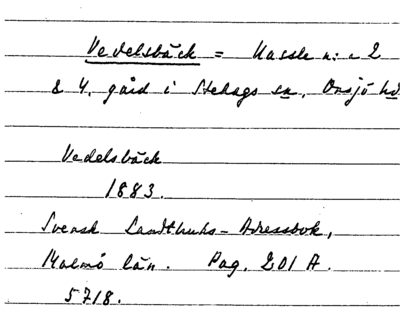 Vedelsbäck = Hassle n:o 2
& 4, gård i Stehags sn, Onsjö hd.
Vedelsbäck
1883.
Svensk Landtbruks-Adressbok,
Malmö län. Pag. 201 A.
5718.